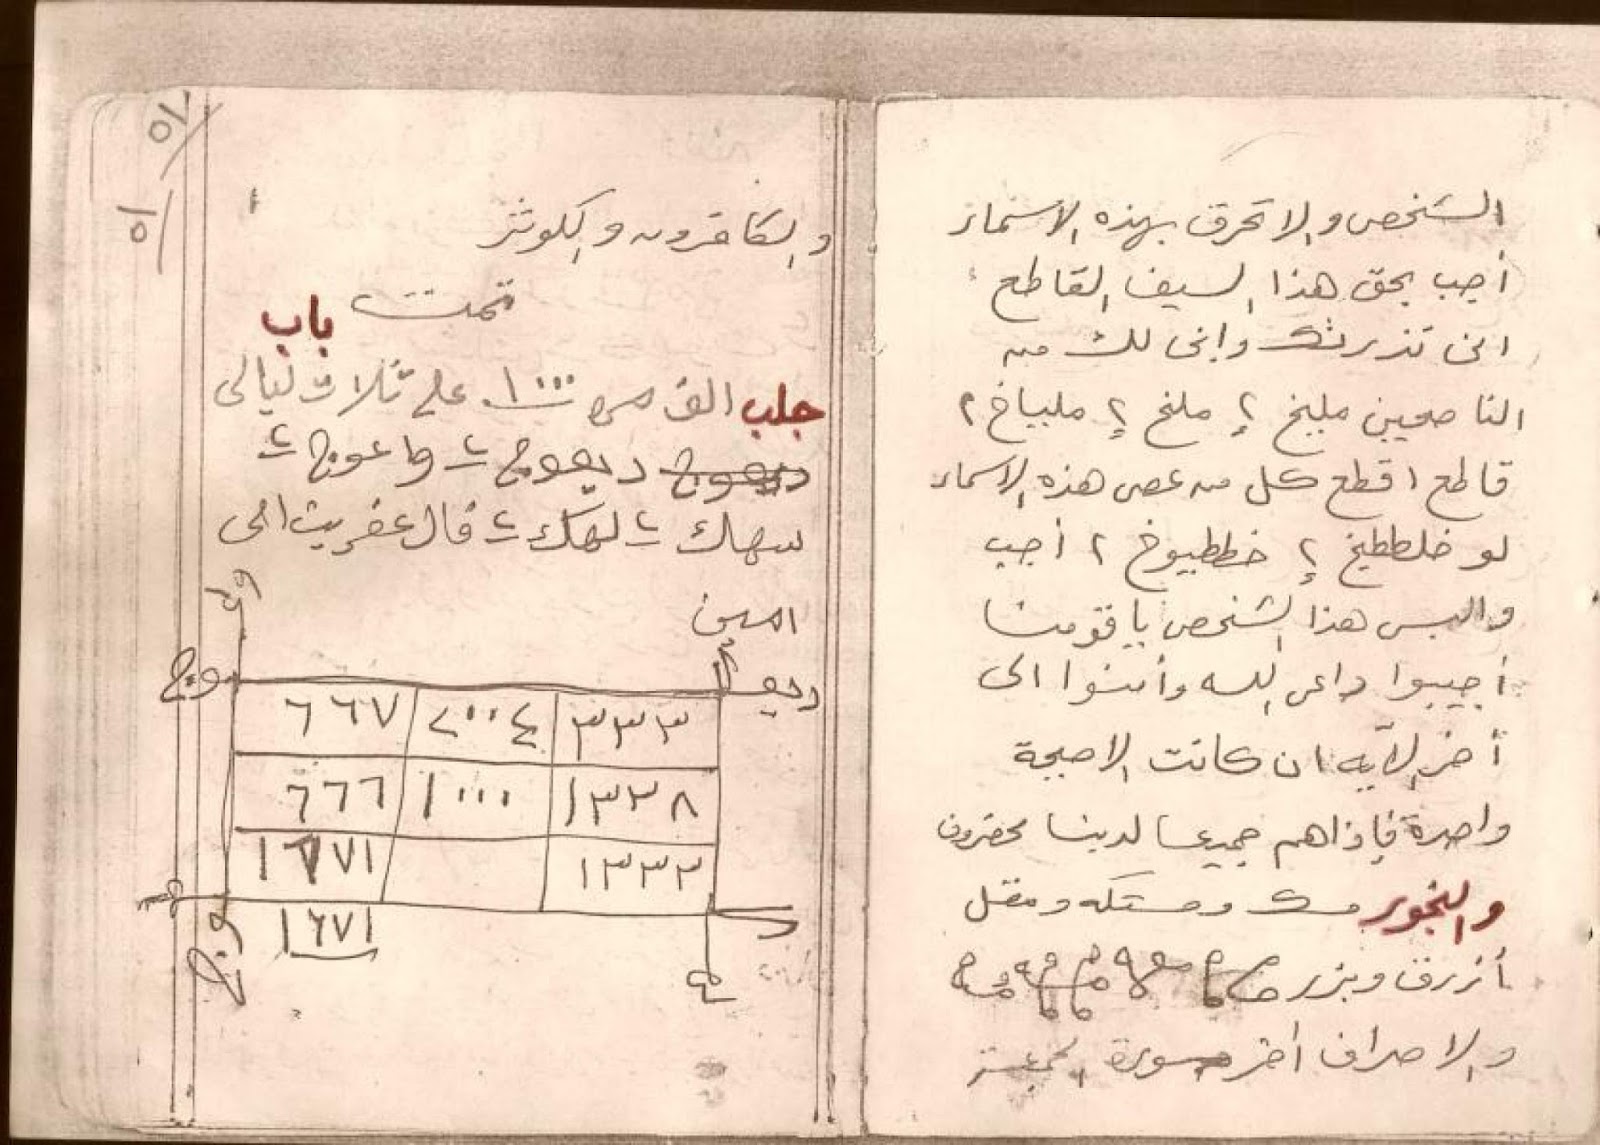 الشخص والا تحرق بهذه الاسماء
أجب بحق هذا السيف القاطع
انى نذرتك وإنى لك من
الناصحين مليخ ٢ ملخ ٢ ملياخ ٢
قاطع اقطع كل من عصى هذه الاسماء
لو خلططيخ ٢ خططيوخ ٢ أجب
والبس هذا الشخص ياقومنا
أجيبوا داعى الله وأمنوا الى
أخر الآيه ان كانت الا صيحة
واحدة فإذاهم جميعا لدينا محضرون
والبخور مسك ومستكه ومقل
أزرق وبزر
والاصراف أخر سورة الجمعة
والكافرون والكوثر
تمت باب
جلب القرص ١٠٠٠ على ثلاث ليالى
ديعوج ٢ واعوج ٢
سهك ٢ لهك ٢ قال عفريت الى
امين
وا
وج ديعو
٣٣٣ ٢٠٠٤ ٦٦٧
١٣٣٨ ١٠٠٠ ٦٦٦
١٣٣٢ ١٦٧١
١٦٧١
وج
١٥
١٥